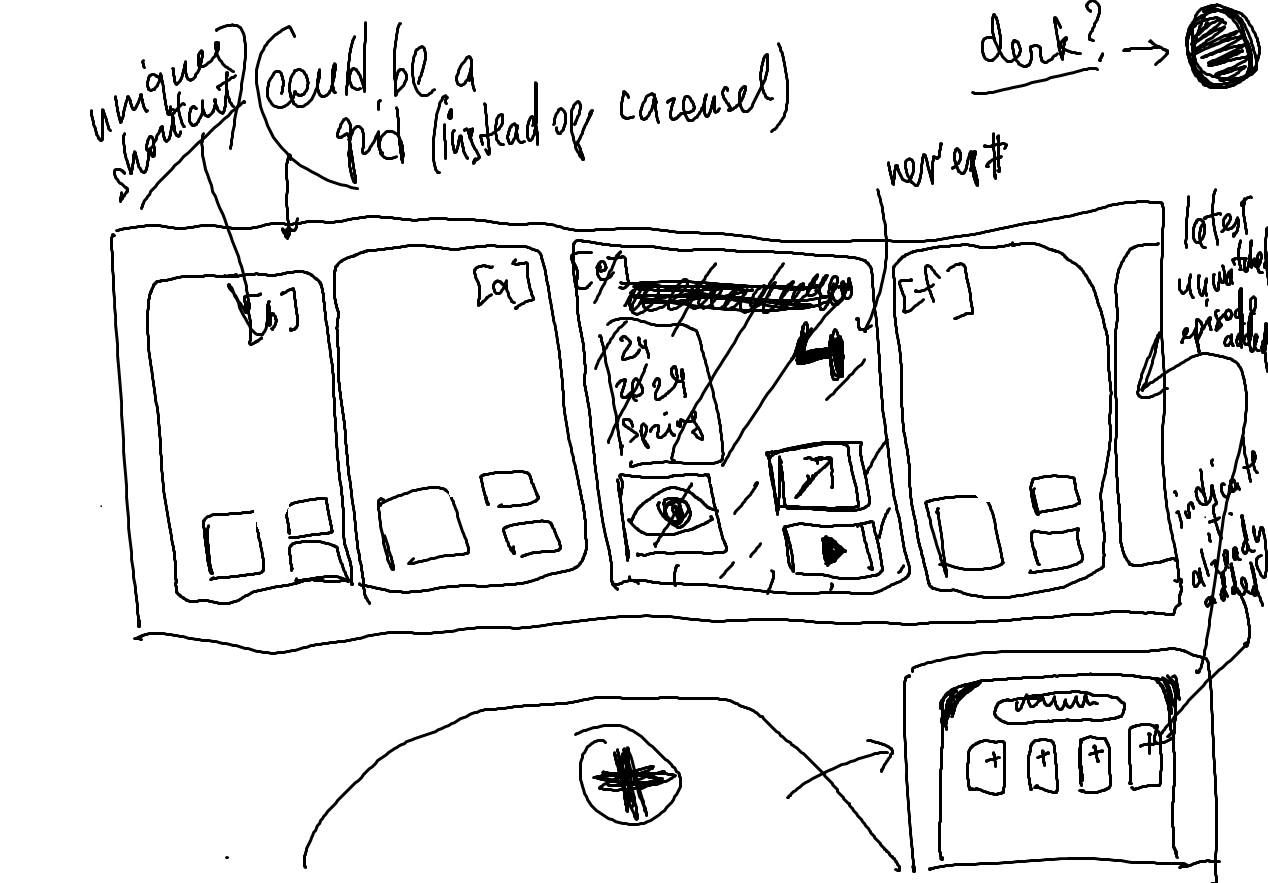 unique
shortcut
(could be a
grid (instead of carousel)
derk?
nev ep #
latest
unwatched
episode
added
[b]
[a]
[e]
[f]
24
2024
spring
4
indicate
it
already
added